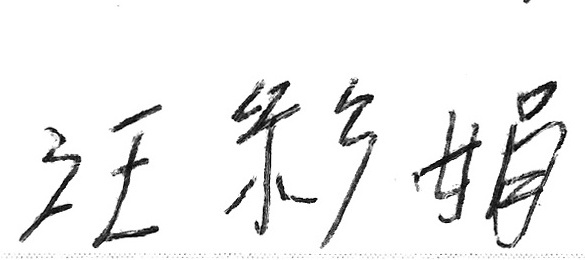 汪彩娟